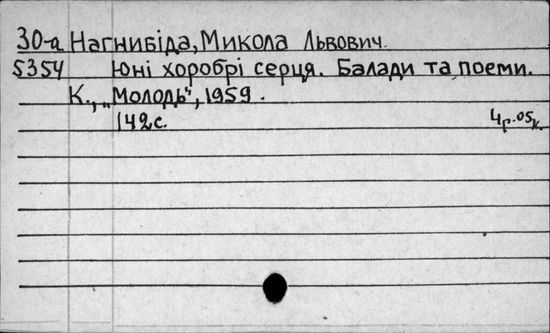 30-а Нагнибіда, Микола Львович.
5354 Юні хоробрі серця. Балади та поеми.
К., „Молодь", 1959.
142с. 4р.05к.